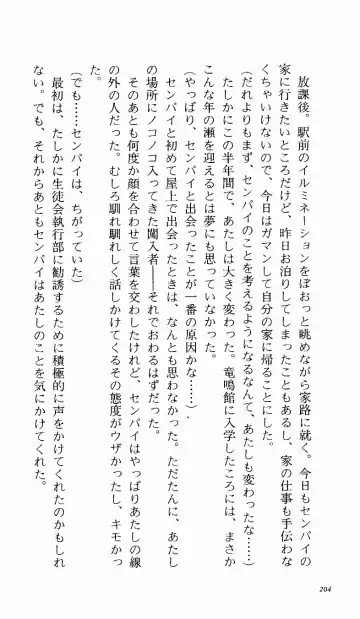 放課後。駅前のイルミネーションをぼおっと眺めながら家路に就く。今日もセンパイの
家に行きたいところだけど、昨日お泊りしてしまったこともあるし、家の仕事も手伝わな
くちゃいけないので、今日はガマンして自分の家に帰ることにした。
(だれよりもまず、センパイのことを考えるようになるなんて、あたしも変わったな……)
たしかにこの半年間で、あたしは大きく変わった。竜鳴館に入学したころには、まさか
こんな年の瀬を迎えるとは夢にも思っていなかった。
(やっぱり、センパイと出会ったことが一番の原因かな……)
センパイと初めて屋上で出会ったときは、なんとも思わなかった。ただたんに、あたし
の場所にノコノコ入ってきた闖入者――それでおわるはずだった。
そのあとも何度か顔を合わせて言葉を交わしたけれど、センパイはやっぱりあたしの線
の外の人だった。むしろ馴れ馴れしく話しかけてくるその態度がウザかったし、キモかっ
た。
(でも……センパイは、ちがっていた)
最初は、たしかに生徒会執行部に勧誘するために積極的に声をかけてくれたのかもしれ
ない。でも、それからあともセンパイはあたしのことを気にかけてくれた。
204